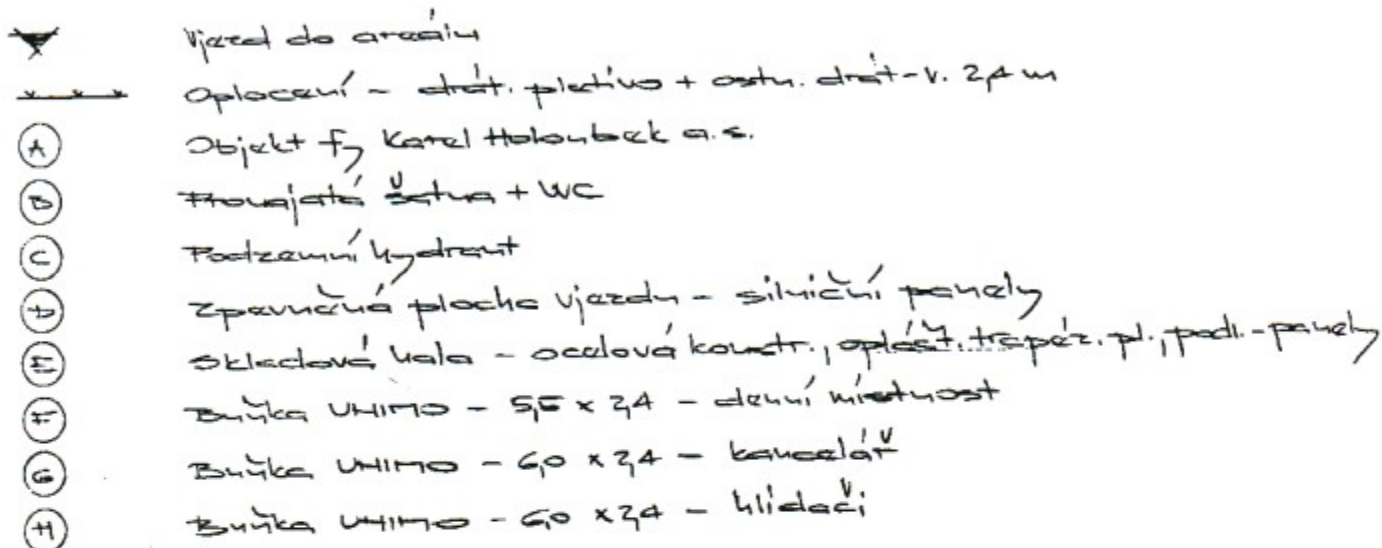 Vjezd do areálu
Oplocení - drát. pletivo + ostn. drát - v. 2,4 m
A Objekt fy Karel Holoubek a.s.
B Pronajatá šatna + WC
C Podzemní hydrant
D Zpevněná plocha vjezdu - silniční panely
E Skladová hala - ocelová konstr., oplášť. trapéz. pl., podl. - panely
F Buňka UNIMO - 5,5 x 2,4 - denní místnost
G Buňka UNIMO - 6,0 x 2,4 - kancelář
H Buňka UNIMO - 6,0 x 2,4 - hlídači